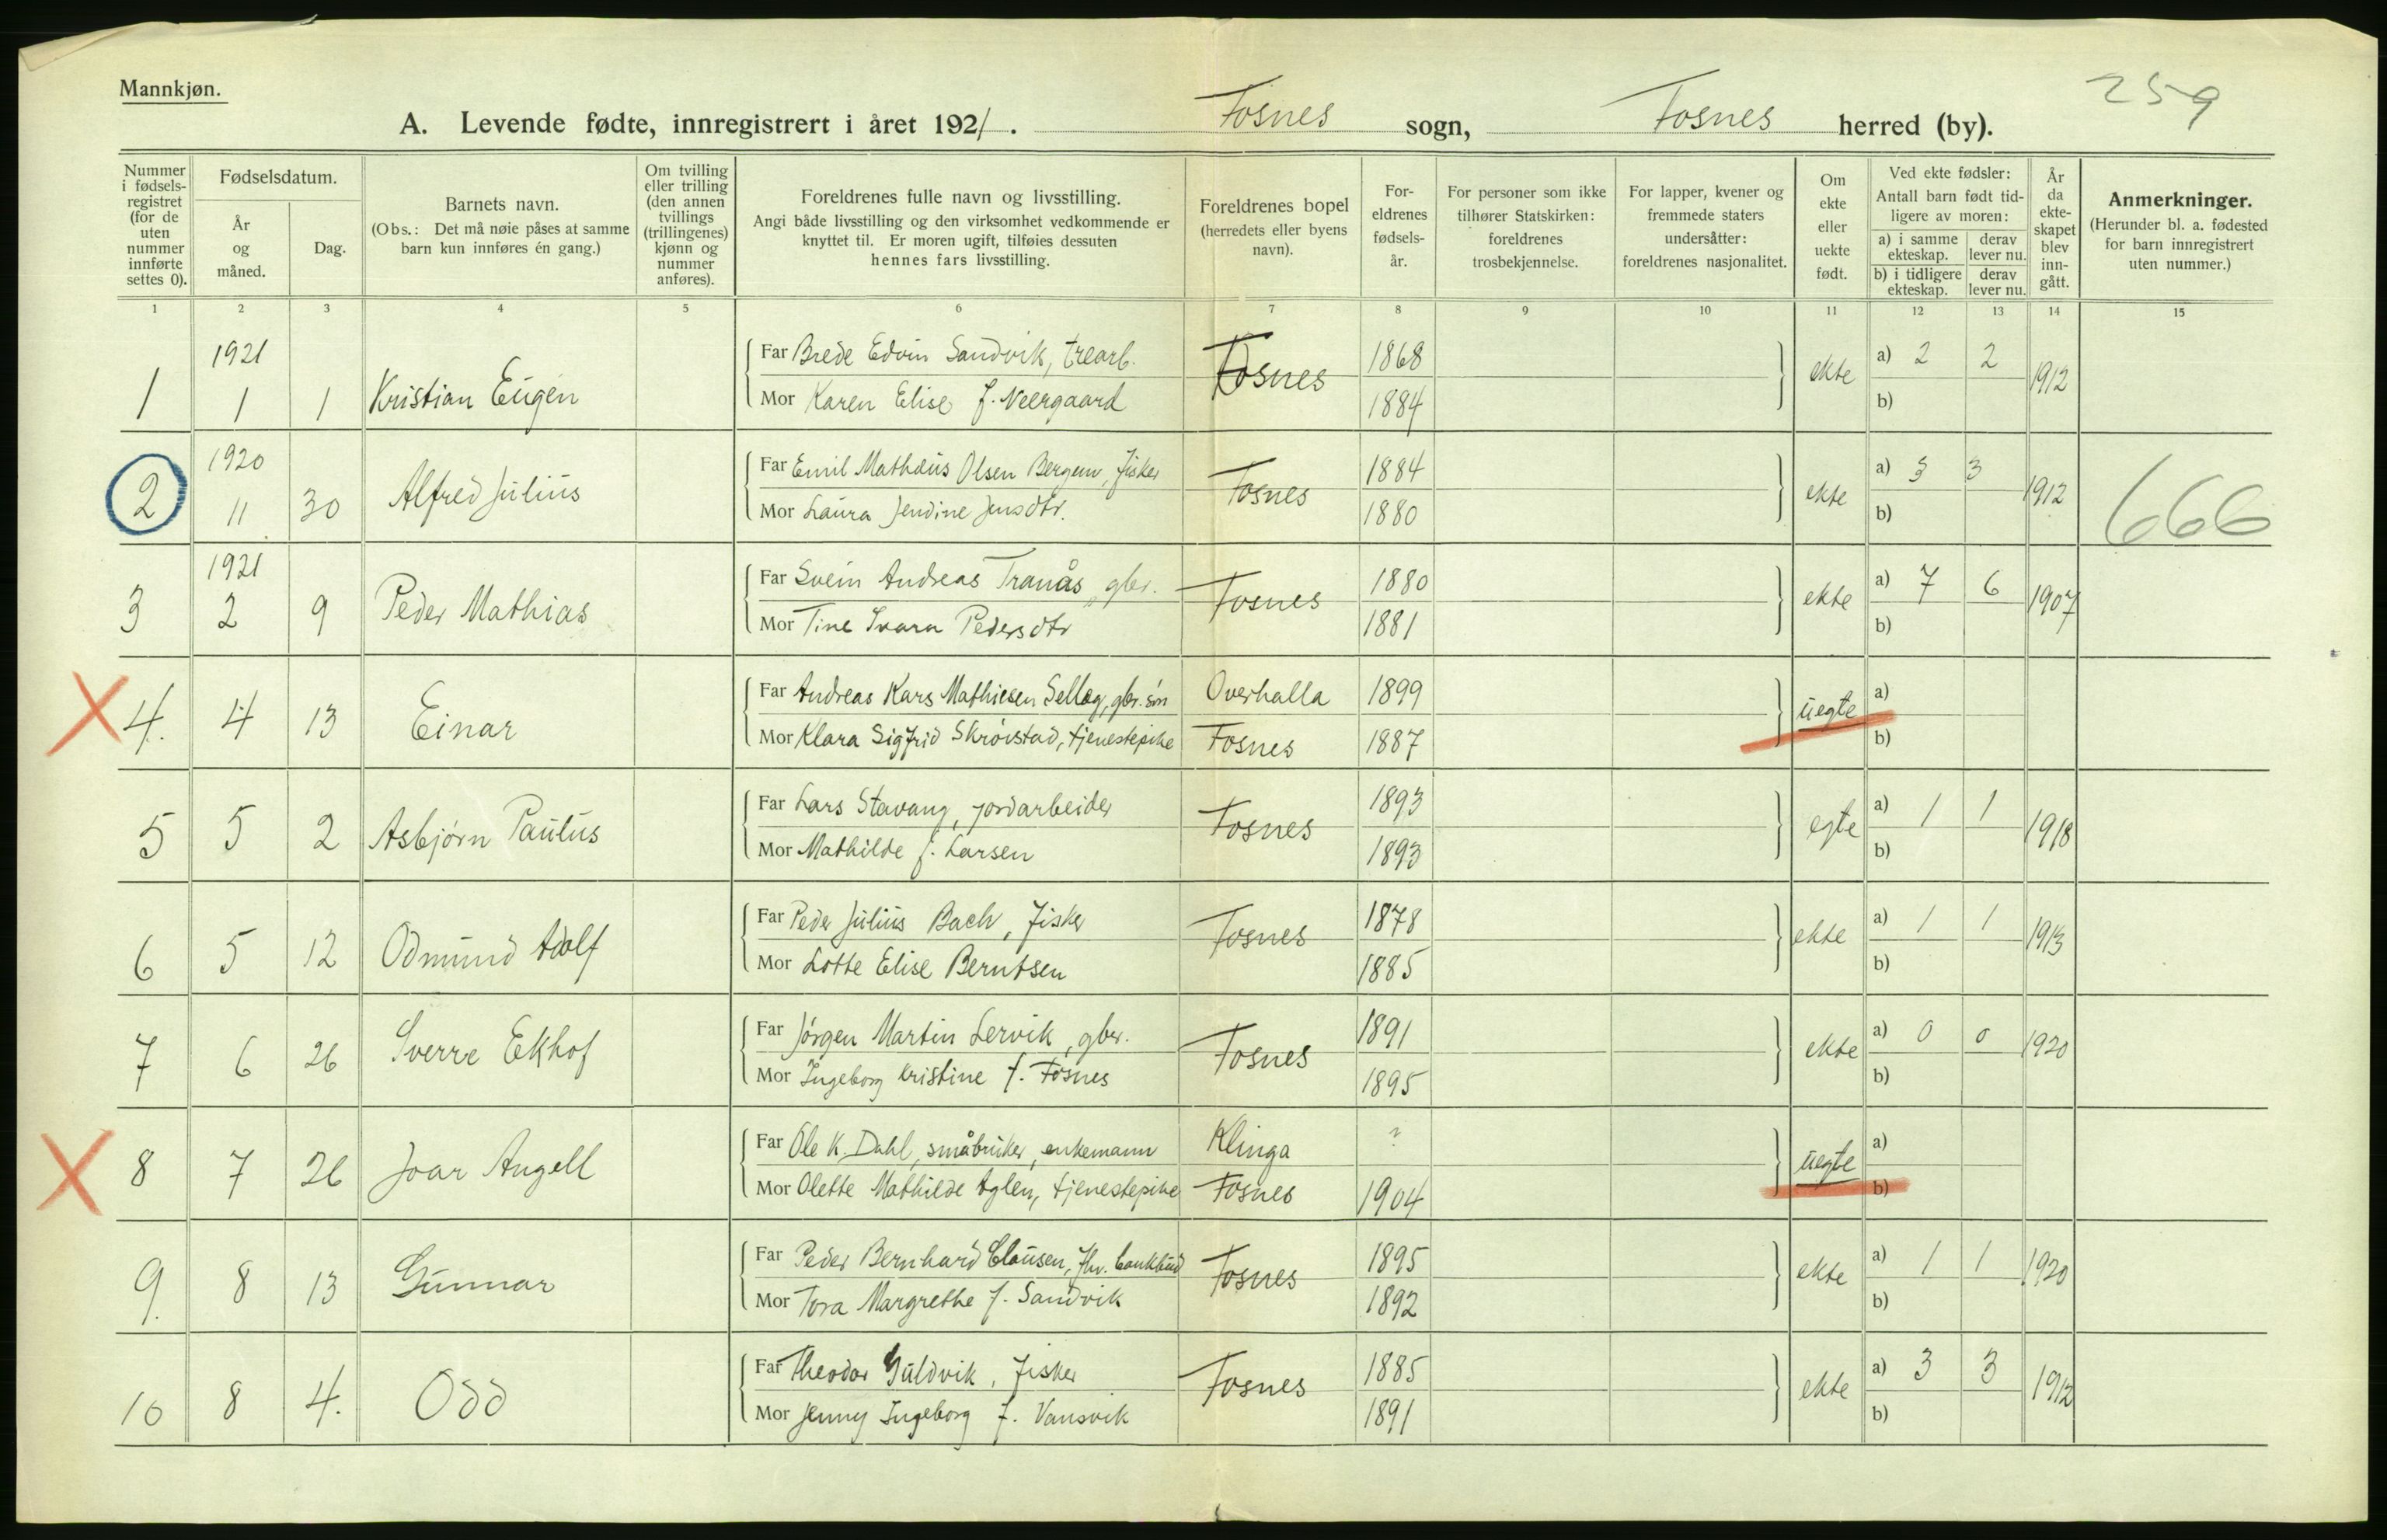 Mannkjøn.
259
A. Levende fødte, innregistrert i året 1921. Fosnes sogn, Fosnes herred (by).
Nummer i fødselsregistret (for de uten nummer innførte settes 0).
Fødselsdatum.
År og måned.
Dag.
Barnets navn.
(Obs.: Det må nøie påses at samme barn kun innføres én gang.)
Om tvilling eller trilling (den annen tvillings (trillingenes) kjønn og nummer anføres).
Foreldrenes fulle navn og livsstilling.
Angi både livsstilling og den virksomhet vedkommende er knyttet til. Er moren ugift, tilføies dessuten hennes fars livsstilling.
Foreldrenes bopel (herredets eller byens navn).
Foreldrenes fødselsår.
For personer som ikke tilhører Statskirken: foreldrenes trosbekjennelse.
For lapper, kvener og fremmede staters undersåtter: foreldrenes nasjonalitet.
Om ekte eller uekte født.
Ved ekte fødsler: Antall barn født tidligere av moren:
a) i samme ekteskap. derav lever nu.
b) i tidligere ekteskap. derav lever nu.
År da ekteskapet blev inngått.
Anmerkninger.
(Herunder bl. a. fødested for barn innregistrert uten nummer.)
1 2 3 4 5 6 7 8 9 10 11 12 13 14 15
1 1921 1 1 Kristian Eugen
Far Brede Edvin Sandvik, trearb. Fosnes 1868 ekte a) 2 2 1912
Mor Karen Elise f. Neergaard 1884 b)
2 1920 11 30 Alfred Julius
Far Emil Mathæus Olsen Bergem, fisker Fosnes 1884 ekte a) 3 3 1912
Mor Laura Jendine Jensdtr. 1880 b)
666
3 1921 2 9 Peder Mathias
Far Svein Andreas Tranås, gbr. Fosnes 1880 ekte a) 7 6 1907
Mor Tine Ivara Pedersdtr 1881 b)
X 4. 4 13 Einar
Far Andreas Kars Mathiesen Selleg, gbr. sön Overhalla 1899 uegte a)
Mor Klara Sigfrid Skrövstad, tjenestepike Fosnes 1887 b)
5 5 2 Asbjörn Paulus
Far Lars Stavang, jordarbeider Fosnes 1893 egte a) 1 1 1918
Mor Mathilde f. Larsen 1893 b)
6 5 12 Odmund Adolf
Far Peder Julius Bach, fisker Fosnes 1878 ekte a) 1 1 1913
Mor Lotte Elise Berntsen 1885 b)
7 6 26 Sverre Ekhof
Far Jörgen Martin Lervik, gbr. Fosnes 1891 ekte a) 0 0 1920
Mor Ingeborg Kristine f. Fosnes 1895 b)
X 8 7 26 Joar Angell
Far Ole K. Dahl, småbruker, enkemann Klinga ? uegte a)
Mor Olette Mathilde Aglen, tjenestepike Fosnes 1904 b)
9. 8 13 Gunnar
Far Peder Bernhard Clausen, Fosnes 1895 ekte a) 1 1 1920
Mor Tora Margrethe f. Sandvik 1892 b)
10 8 4. Odd
Far Theodor Guldvik, fisker Fosnes 1885 ekte a) 3 3 1912
Mor Jenny Ingeborg f. Vansvik 1891 b)